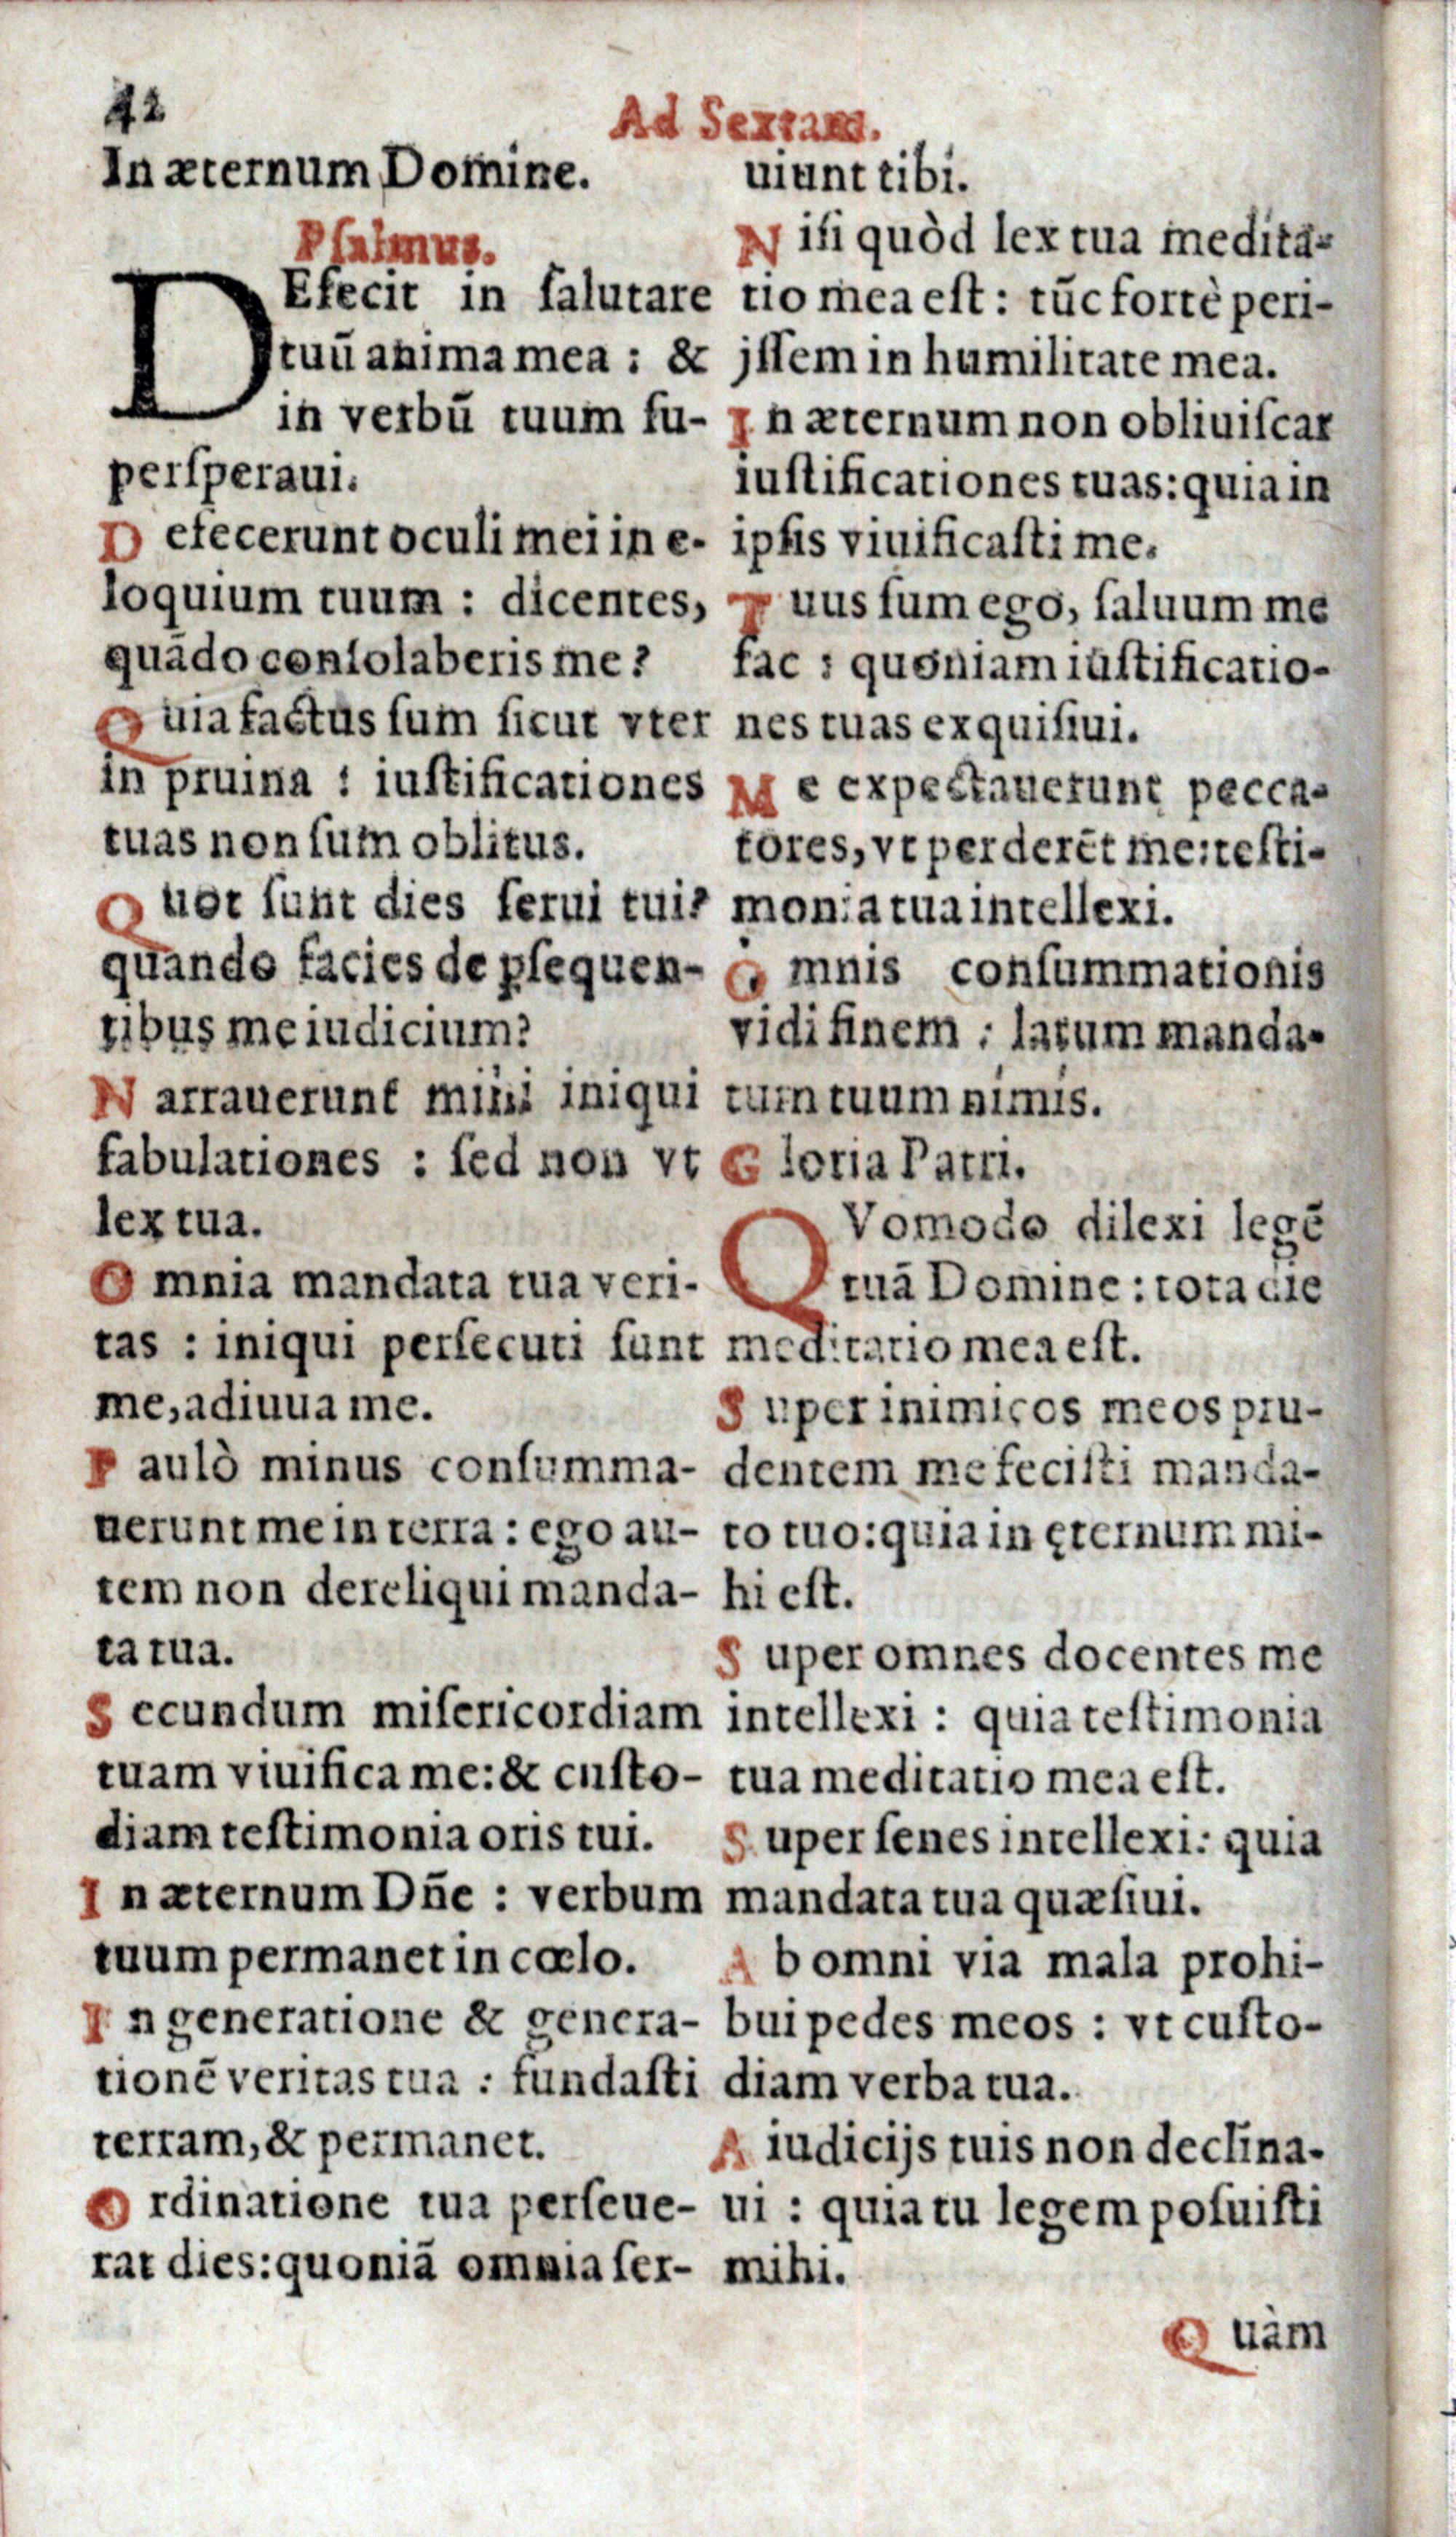 42
Ad Sextam.
In æternum Domine.
Pſalmus.
DEfecit in ſalutare
tuū anima mea : &
in verbū tuum ſu-
perſperaui.
Defecerunt oculi mei in e-
loquium tuum : dicentes,
quādo conſolaberis me?
Quia factus ſum ſicut vter
in pruina : iuſtificationes
tuas non ſum oblitus.
Quot ſunt dies ſerui tui?
quando facies de ꝑſequen-
tibus me iudicium?
Narrauerunt mihi iniqui
fabulationes : ſed non vt
lex tua.
Omnia mandata tua veri-
tas : iniqui perſecuti ſunt
me, adiuua me.
Paulò minus conſumma-
uerunt me in terra : ego au-
tem non dereliqui manda-
ta tua.
Secundum miſericordiam
tuam viuifica me: & cuſto-
diam teſtimonia oris tui.
In æternum Dñe : verbum
tuum permanet in cœlo.
In generatione & genera-
tionē veritas tua : fundaſti
terram, & permanet.
Ordinatione tua perſeue-
rat dies: quoniā omnia ſer-
uiunt tibi.
Niſi quòd lex tua medita-
tio mea eſt : tūc fortè peri-
jſſem in humilitate mea.
In æternum non obliuiſcar
iuſtificationes tuas: quia in
ipſis viuificaſti me.
Tuus ſum ego, ſaluum me
fac : quoniam iuſtificatio-
nes tuas exquiſiui.
Me expectauerunt pecca-
tores, vt perderēt me: teſti-
monia tua intellexi.
Omnis conſummationis
vidi finem : latum manda-
tum tuum nimis.
Gloria Patri.
QVomodo dilexi legē
tuā Domine : tota die
meditatio mea eſt.
Super inimicos meos pru-
dentem me feciſti manda-
to tuo: quia in ęternum mi-
hi eſt.
Super omnes docentes me
intellexi : quia teſtimonia
tua meditatio mea eſt.
Super ſenes intellexi: quia
mandata tua quæſiui.
Ab omni via mala prohi-
bui pedes meos : vt cuſto-
diam verba tua.
A iudicijs tuis non declina-
ui : quia tu legem poſuiſti
mihi.
Quàm